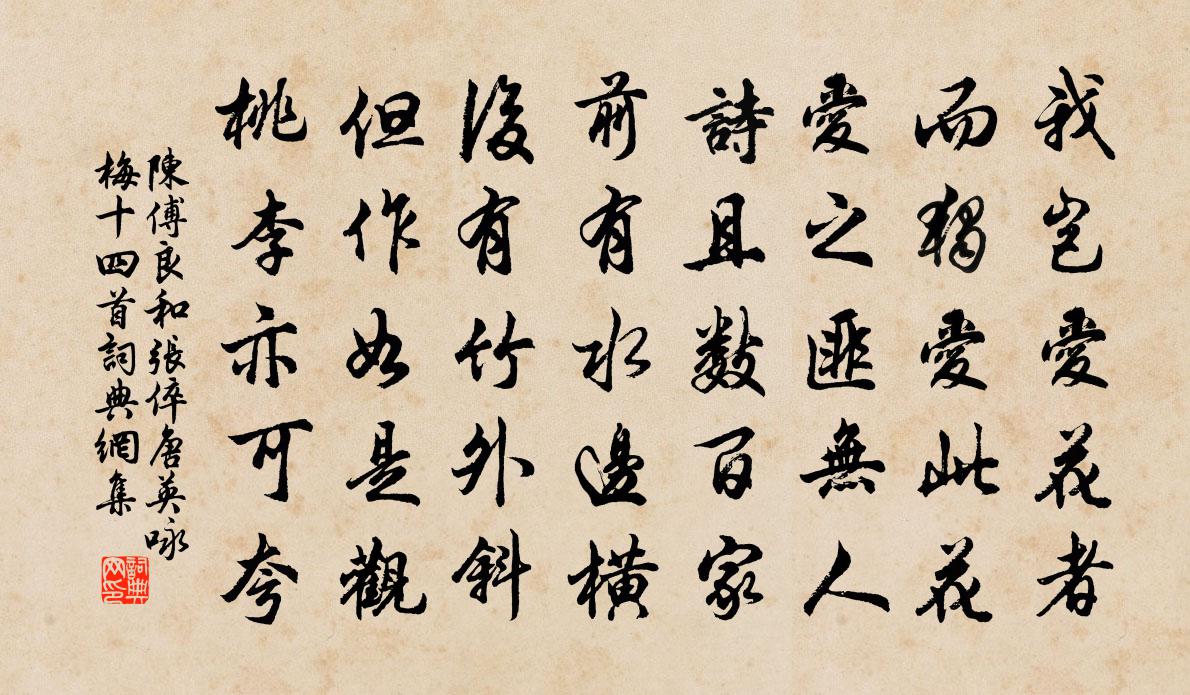 我豈愛花者
而獨愛此花
愛之匪無人
詩且數百家
前有水邊橫
後有竹外斜
但作如是觀
桃李亦可夸
陳傅良和張倅唐英咏
梅十四首詞典網集
詞典
网印